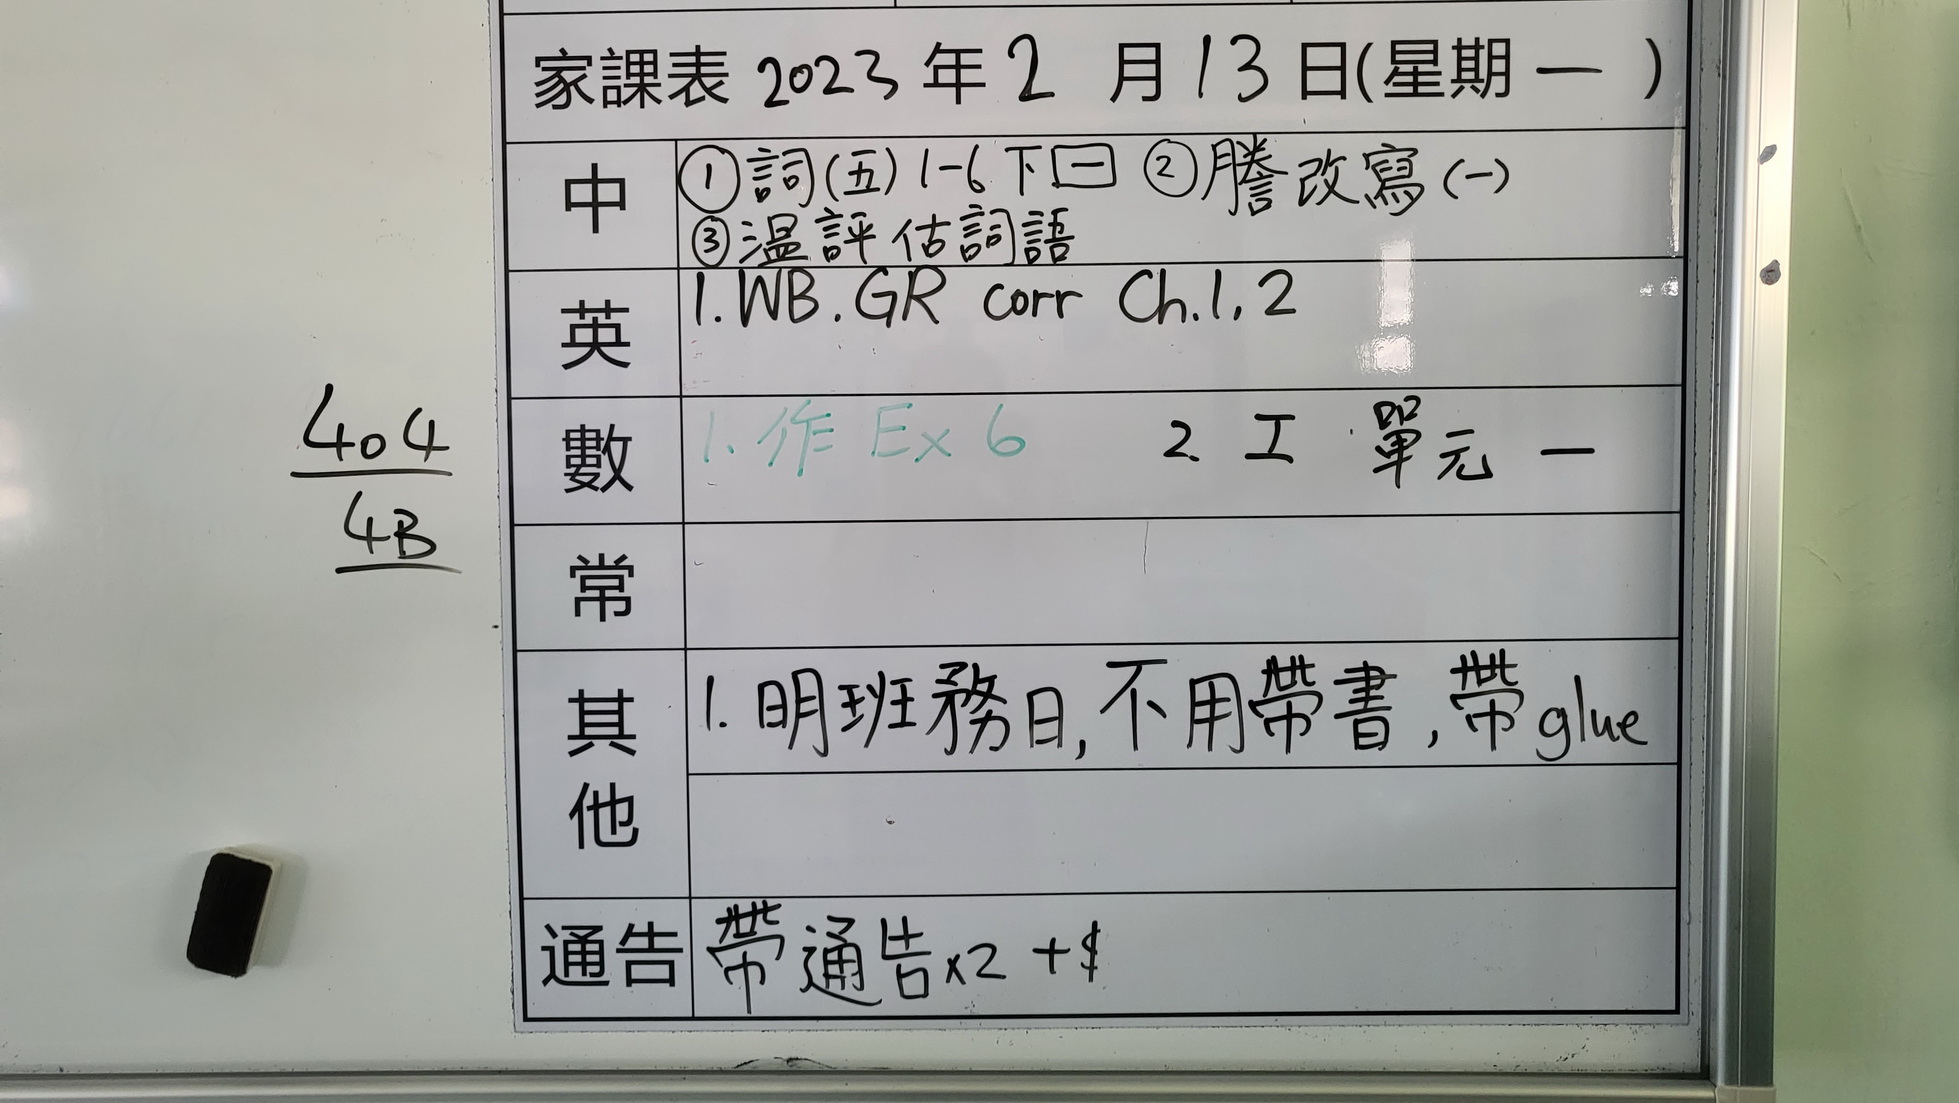 家課表 2023 年 2 月 13 日(星期 一 )
中 ①詞(五) 1-6 下 ②謄改寫(一)
③溫評估詞語
英 1. WB. GR corr Ch.1, 2
數 1. 作 Ex 6 2. 工 單元 一
404
4B
常
其他 1. 明班務日, 不用帶書, 帶 glue
通告 帶通告x2 +$